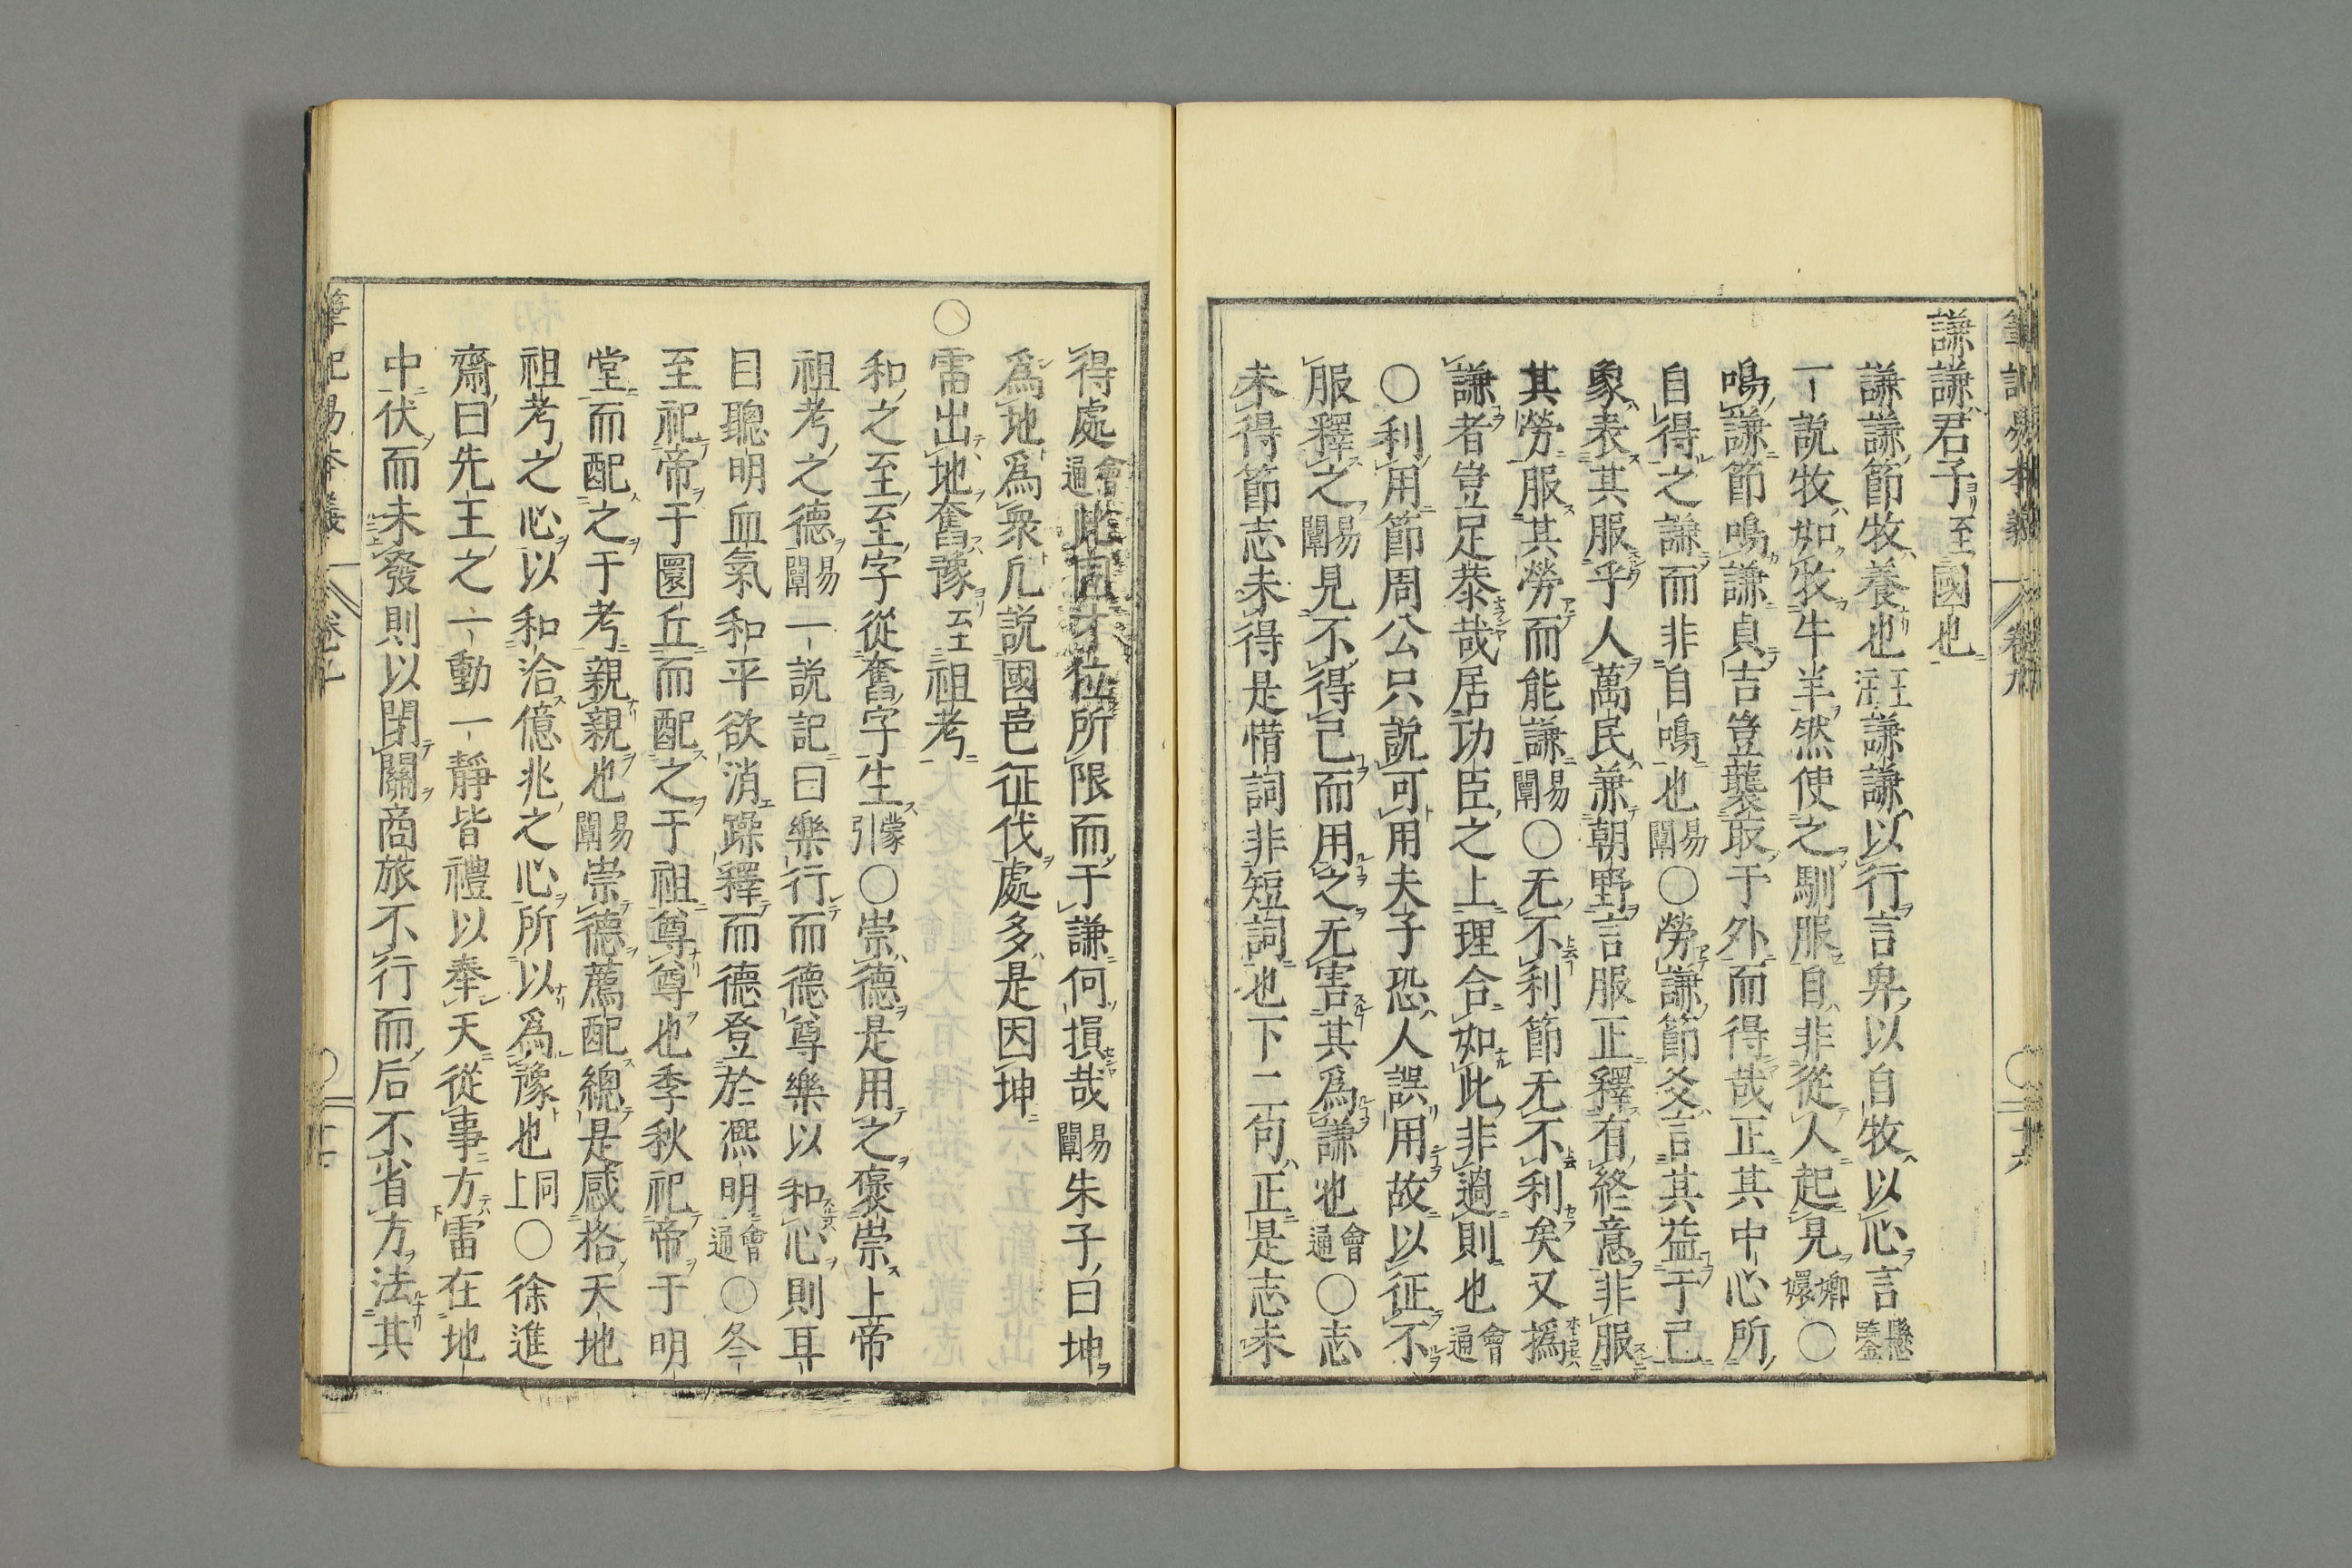 謙謙君子至國也
謙謙節牧養也王註謙謙以行言卑以自牧以心言懸鑒
一說牧如牧牛羊然使之馴服自非從人起見嫏嬛○
鳴謙節鳴謙貞吉豈襲取于外而得哉正其中心所
自得之謙而非自鳴也易闡○勞謙節爻言其益于己
象表其服乎人萬民兼朝野言服正釋有終意非服
其勞服其勞而能謙易闡○无不利節无不利矣又撝
謙者豈足恭哉居功臣之上理合如此非過則也會通
○利用節周公只說可用夫子恐人誤用故以征不
服釋之易闡見不得已而用之无害其為謙也會通○志
未得節志未得是惜詞非短詞也下二句正是志未
得處會通此固才位所限而于謙何損哉易闡朱子曰坤
為地為衆凡說國邑征伐處多是因坤
○雷出地奮豫至祖考
和之至至字從奮字生蒙引○崇德是用之褒崇上帝
祖考之德易闡一說記曰樂行而德尊樂以和心則耳
目聰明血氣和平欲消躁釋而德登於凞明會通○冬
至祀帝于圜丘而配之于祖尊尊也季秋祀帝于明
堂而配之于考親親也易闡崇德薦配總是感格天地
祖考之心以和洽億兆之心所以為豫也同上○徐進
齋曰先王之一動一靜皆禮以奉天從事方雷在地
中伏而未發則以閉關商旅不行而后不省方法其